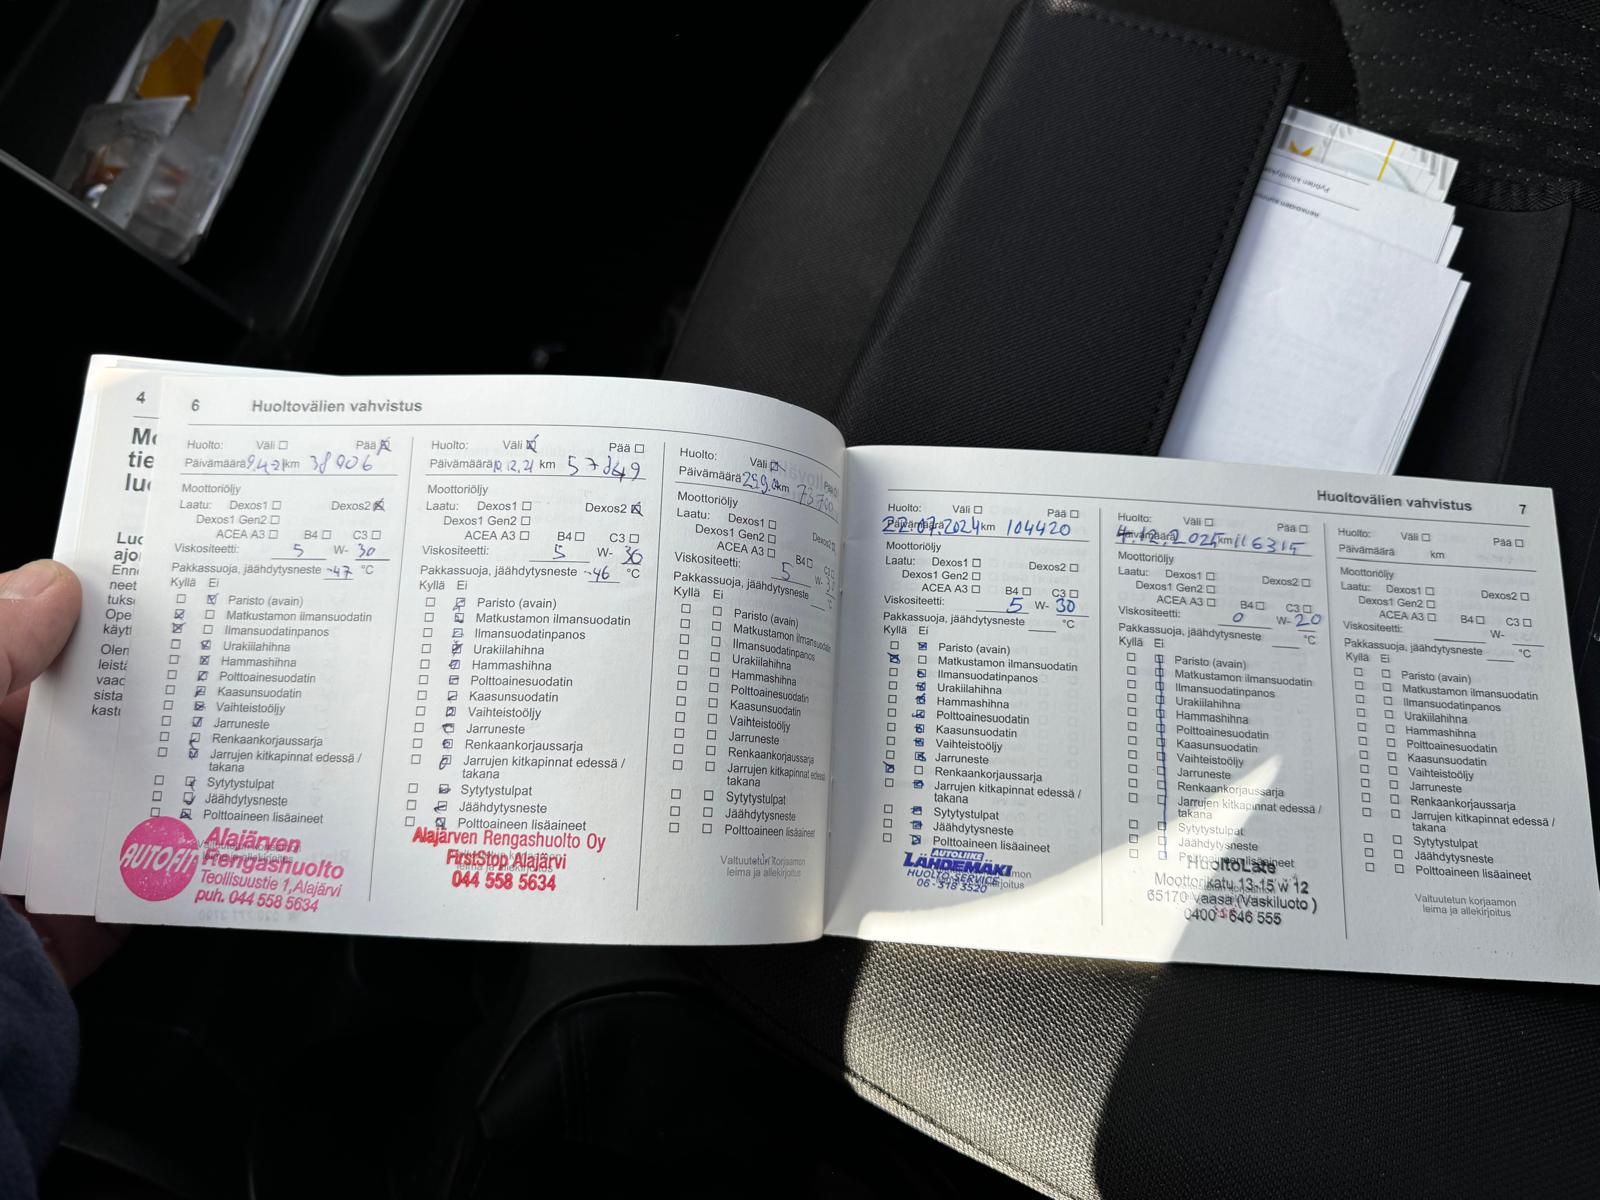 4
Mo
tie
lu
Luo
ajo
Enn
neet
tuks
Ope
käyt
Olen
leist
vaad
sista
kast
6 Huoltovälien vahvistus
Huolto: Väli ☐ Pää ☒
Päivämäärä 9.4.21 km 38906
Moottoriöljy
Laatu: Dexos1 ☐ Dexos2 ☒
Dexos1 Gen2 ☐
ACEA A3 ☐ B4 ☐ C3 ☐
Viskositeetti: 5 W- 30
Pakkassuoja, jäähdytysneste -47 °C
Kyllä Ei
☐ ☒ Paristo (avain)
☒ ☐ Matkustamon ilmansuodatin
☒ ☐ Ilmansuodatinpanos
☐ ☒ Urakiilahihna
☐ ☒ Hammashihna
☐ ☒ Polttoainesuodatin
☐ ☒ Kaasunsuodatin
☐ ☒ Vaihteistoöljy
☐ ☒ Jarruneste
☐ ☒ Renkaankorjaussarja
☐ ☒ Jarrujen kitkapinnat edessä /
takana
☐ ☒ Sytytystulpat
☐ ☒ Jäähdytysneste
☐ ☒ Polttoaineen lisäaineet
AUTOFIT
Alajärven
Rengashuolto
Teollisuustie 1, Alajärvi
puh. 044 558 5634
Huolto: Väli ☒ Pää ☐
Päivämäärä 10.12.21 km 57849
Moottoriöljy
Laatu: Dexos1 ☐ Dexos2 ☒
Dexos1 Gen2 ☐
ACEA A3 ☐ B4 ☐ C3 ☐
Viskositeetti: 5 W- 30
Pakkassuoja, jäähdytysneste -46 °C
Kyllä Ei
☐ ☒ Paristo (avain)
☐ ☒ Matkustamon ilmansuodatin
☐ ☒ Ilmansuodatinpanos
☐ ☒ Urakiilahihna
☐ ☒ Hammashihna
☐ ☒ Polttoainesuodatin
☐ ☒ Kaasunsuodatin
☐ ☒ Vaihteistoöljy
☐ ☒ Jarruneste
☐ ☒ Renkaankorjaussarja
☐ ☒ Jarrujen kitkapinnat edessä /
takana
☐ ☒ Sytytystulpat
☐ ☒ Jäähdytysneste
☐ ☒ Polttoaineen lisäaineet
Alajärven Rengashuolto Oy
FirstStop Alajärvi
044 558 5634
Huolto: Väli ☒ Pää ☐
Päivämäärä km
Moottoriöljy
Laatu: Dexos1 ☐ Dexos2 ☐
Dexos1 Gen2 ☐
ACEA A3 ☐ B4 ☐
Viskositeetti: 5 W-
Pakkassuoja, jäähdytysneste
Kyllä Ei
☐ ☐ Paristo (avain)
☐ ☐ Matkustamon ilmansuodatin
☐ ☐ Ilmansuodatinpanos
☐ ☐ Urakiilahihna
☐ ☐ Hammashihna
☐ ☐ Polttoainesuodatin
☐ ☐ Kaasunsuodatin
☐ ☐ Vaihteistoöljy
☐ ☐ Jarruneste
☐ ☐ Renkaankorjaussarja
☐ ☐ Jarrujen kitkapinnat edessä
takana
☐ ☐ Sytytystulpat
☐ ☐ Jäähdytysneste
☐ ☐ Polttoaineen lisäaineet
Valtuutetun korjaamon
leima ja allekirjoitus
Huoltovälien vahvistus 7
Huolto: Väli ☐ Pää ☐
Päivämäärä 22.07.2024 km 104420
Moottoriöljy
Laatu: Dexos1 ☐ Dexos2 ☐
Dexos1 Gen2 ☐
ACEA A3 ☐ B4 ☐ C3 ☐
Viskositeetti: 5 W- 30
Pakkassuoja, jäähdytysneste °C
Kyllä Ei
☐ ☒ Paristo (avain)
☒ ☐ Matkustamon ilmansuodatin
☐ ☒ Ilmansuodatinpanos
☐ ☒ Urakiilahihna
☐ ☒ Hammashihna
☐ ☒ Polttoainesuodatin
☐ ☒ Kaasunsuodatin
☐ ☒ Vaihteistoöljy
☐ ☒ Jarruneste
☒ ☐ Renkaankorjaussarja
☐ ☒ Jarrujen kitkapinnat edessä /
takana
☐ ☒ Sytytystulpat
☐ ☒ Jäähdytysneste
☐ ☒ Polttoaineen lisäaineet
AUTOLIIKE
LÄHDEMÄKI
HUOLTO-SERVICE
06 - 318 3520
Huolto: Väli ☐ Pää ☐
Päivämäärä 4.12.2025 km 116315
Moottoriöljy
Laatu: Dexos1 ☐ Dexos2 ☐
Dexos1 Gen2 ☐
ACEA A3 ☐ B4 ☐ C3 ☐
Viskositeetti: 0 W- 20
Pakkassuoja, jäähdytysneste °C
Kyllä Ei
☐ ☐ Paristo (avain)
☐ ☐ Matkustamon ilmansuodatin
☐ ☐ Ilmansuodatinpanos
☐ ☐ Urakiilahihna
☐ ☐ Hammashihna
☐ ☐ Polttoainesuodatin
☐ ☐ Kaasunsuodatin
☐ ☐ Vaihteistoöljy
☐ ☐ Jarruneste
☐ ☐ Renkaankorjaussarja
☐ ☐ Jarrujen kitkapinnat edessä /
takana
☐ ☐ Sytytystulpat
☐ ☐ Jäähdytysneste
☐ ☐ Polttoaineen lisäaineet
HuoltoLate
Moottorikatu 13-15 w 12
65170 Vaasa (Vaskiluoto )
0400 - 646 555
Huolto: Väli ☐ Pää ☐
Päivämäärä km
Moottoriöljy
Laatu: Dexos1 ☐ Dexos2 ☐
Dexos1 Gen2 ☐
ACEA A3 ☐ B4 ☐ C3 ☐
Viskositeetti: W-
Pakkassuoja, jäähdytysneste °C
Kyllä Ei
☐ ☐ Paristo (avain)
☐ ☐ Matkustamon ilmansuodatin
☐ ☐ Ilmansuodatinpanos
☐ ☐ Urakiilahihna
☐ ☐ Hammashihna
☐ ☐ Polttoainesuodatin
☐ ☐ Kaasunsuodatin
☐ ☐ Vaihteistoöljy
☐ ☐ Jarruneste
☐ ☐ Renkaankorjaussarja
☐ ☐ Jarrujen kitkapinnat edessä /
takana
☐ ☐ Sytytystulpat
☐ ☐ Jäähdytysneste
☐ ☐ Polttoaineen lisäaineet
Valtuutetun korjaamon
leima ja allekirjoitus